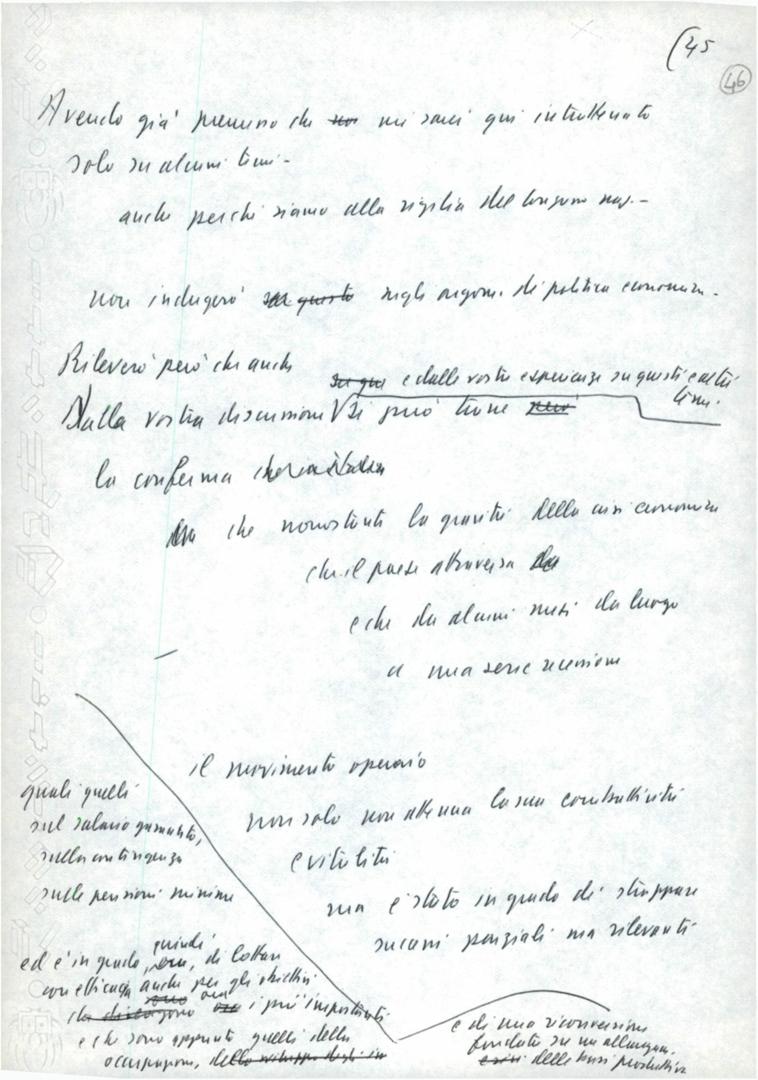 (45
46
Avendo già premesso che non mi sarei qui intrattenuto
solo su alcuni temi -
anche perché siamo alla vigilia del congresso naz. -
non indugerò su questo sugli argom. di politica economica -
Rileverò però che anche
su qui e dalle vostre esperienze su questi e altri
temi.
Dalla vostra discussione si può trarre
la conferma
che nonostante la gravità della crisi economica
che il paese attraversa
e che da alcuni mesi dà luogo
a una seria recessione
il movimento operaio
non solo non attenua la sua combattività
e vitalità
ma è stato in grado di strappare
successi parziali ma rilevanti
quali quelli
sul salario garantito,
sulla contingenza
sulle pensioni minime
quindi
ed è in grado, ora, di lottare
con efficacia anche per gli obiettivi
ora i più importanti
e che sono appunto quelli della
occupazione, dello sviluppo degli in
e di una riconversione
fondata su un allargam.
delle basi produttive